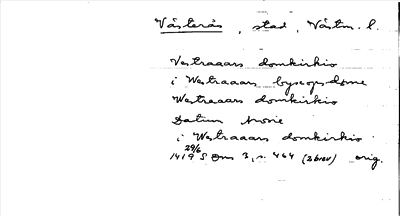 Västerås, stad, Västm. l.
Vestraaars domkirkio
i Westraaars byscopsdøme
Westraaars domkirkio
Datum Arosie
i Westraaars domkirkio
29/6
1419 S Dns 3, s. 464 (2 brev) orig.